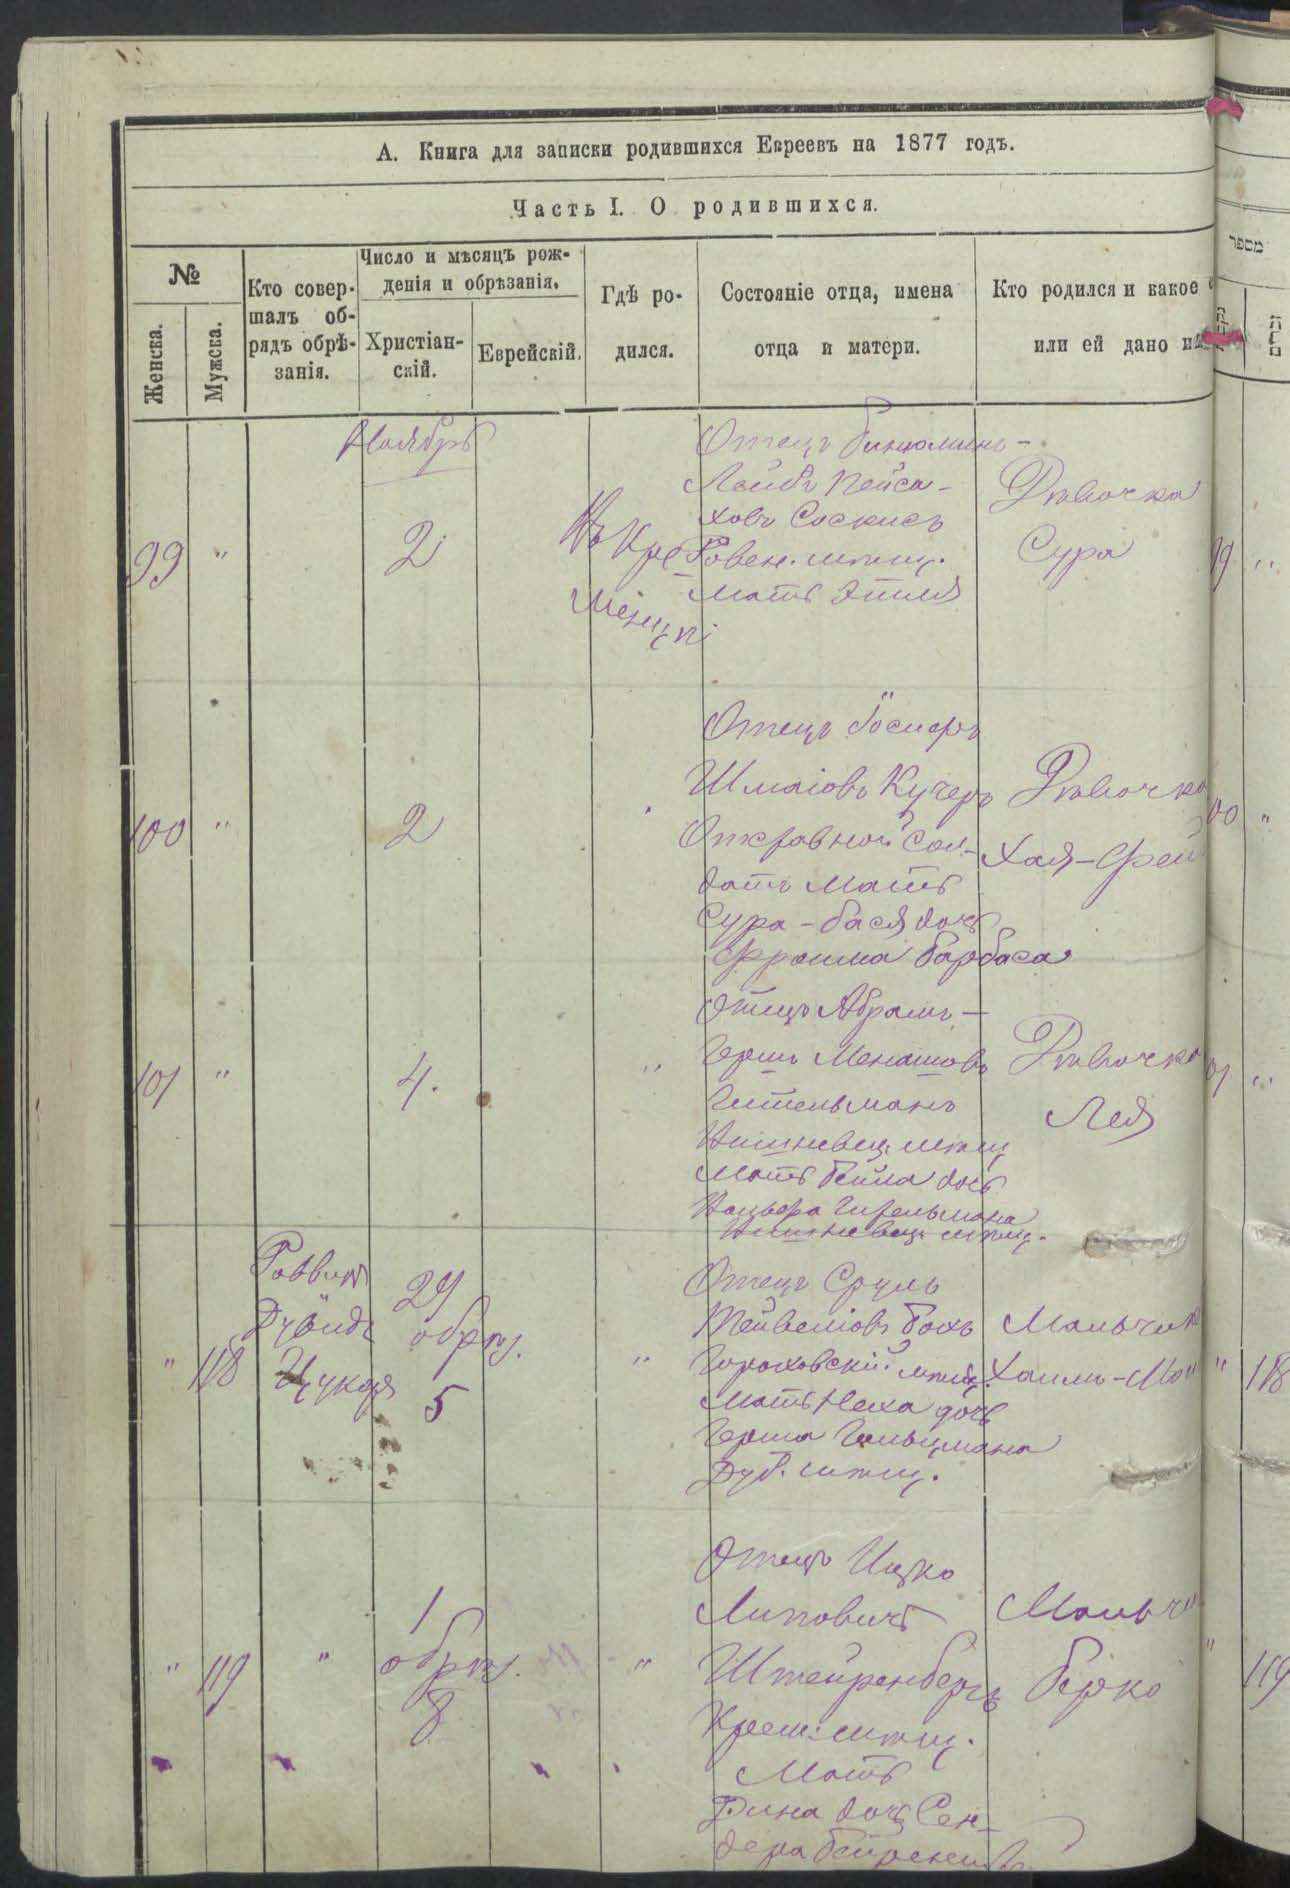 А. Книга для записки родившихся Евреевъ на 1877 годъ.
Часть I. О родившихся.
№
Женска.
Мужска.
Кто совершалъ об-
рядъ обрѣ-
занія.
Число и мѣсяцъ рож-
денія и обрѣзанія.
Христіан-
скій.
Еврейскій.
Гдѣ ро-
дился.
Состояніе отца, имена
отца и матери.
Кто родился и какое
или ей дано
מספר
זכרים
Ноябрь
99 " 2
Отецъ Бинюминъ-
Лейбъ Пейса-
ховъ
Ровен. мѣщ.
Мать Этля
Дѣвочка
Сура
99 "
100 " 2
Отецъ Іосифъ
Шмаіовъ Кучеръ
Отставной Сол-
датъ Мать
Сура-Бася дочь
Фроима Барбаса
Дѣвочка
Хая-Фей
00 "
101 " 4. "
Отецъ Абрамъ-
Гершъ Менашовъ
Гительманъ
Вишневец. мѣщ.
Мать Бейла дочь
Вишневец. мѣщ.
Дѣвочка
Лея
01 "
" 118
Раввинъ
Дувидъ
Цукеръ
29
обрѣз.
5
"
Отецъ Сруль
Тейвеліовъ
Гороховскій мѣщ.
Мать Неха дочь
Герша Гольцмана
Дуб. мѣщ.
Мальчик
Хаимъ-Мо
" 118
" 119 "
1
обрѣз.
8
"
Отецъ Ицко
Липовичъ
Штейренбергъ
Крем. мѣщ.
Мать
Дина дочь Сен-
дера
Мальч
Берко
" 119